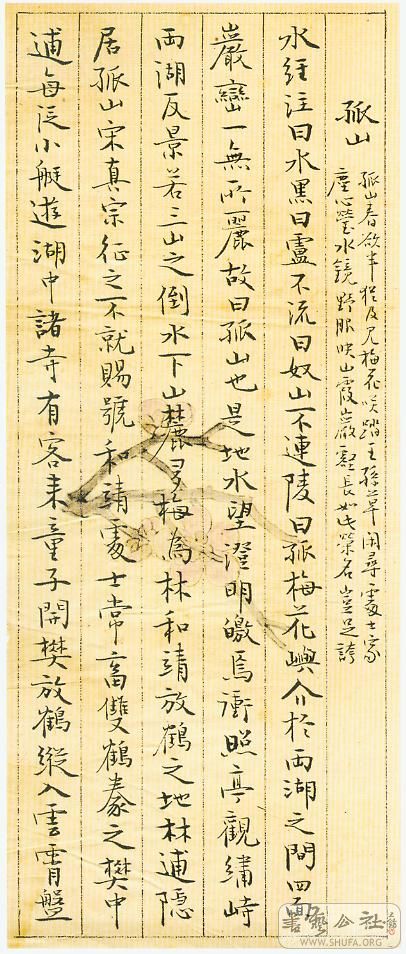 孤山
孤山春欲半猶及見梅花咲踏王孫草閒尋處士家
塵心瑩水鏡野服映山霞巖壑長如此榮名豈足誇
水經注曰水黑曰盧不流曰奴山不連陵曰孤梅花嶼介於兩湖之間四面
巖巒一無所麗故曰孤山也是地水望澄明皦焉衝照亭觀繡峙
兩湖反景若三山之倒水下山麓多梅為林和靖放鶴之地林逋隱
居孤山宋真宗征之不就賜號和靖處士常畜雙鶴豢之樊中
逋每泛小艇遊湖中諸寺有客來童子開樊放鶴縱入雲霄盤
書藝公社
WWW.SHUFA.ORG